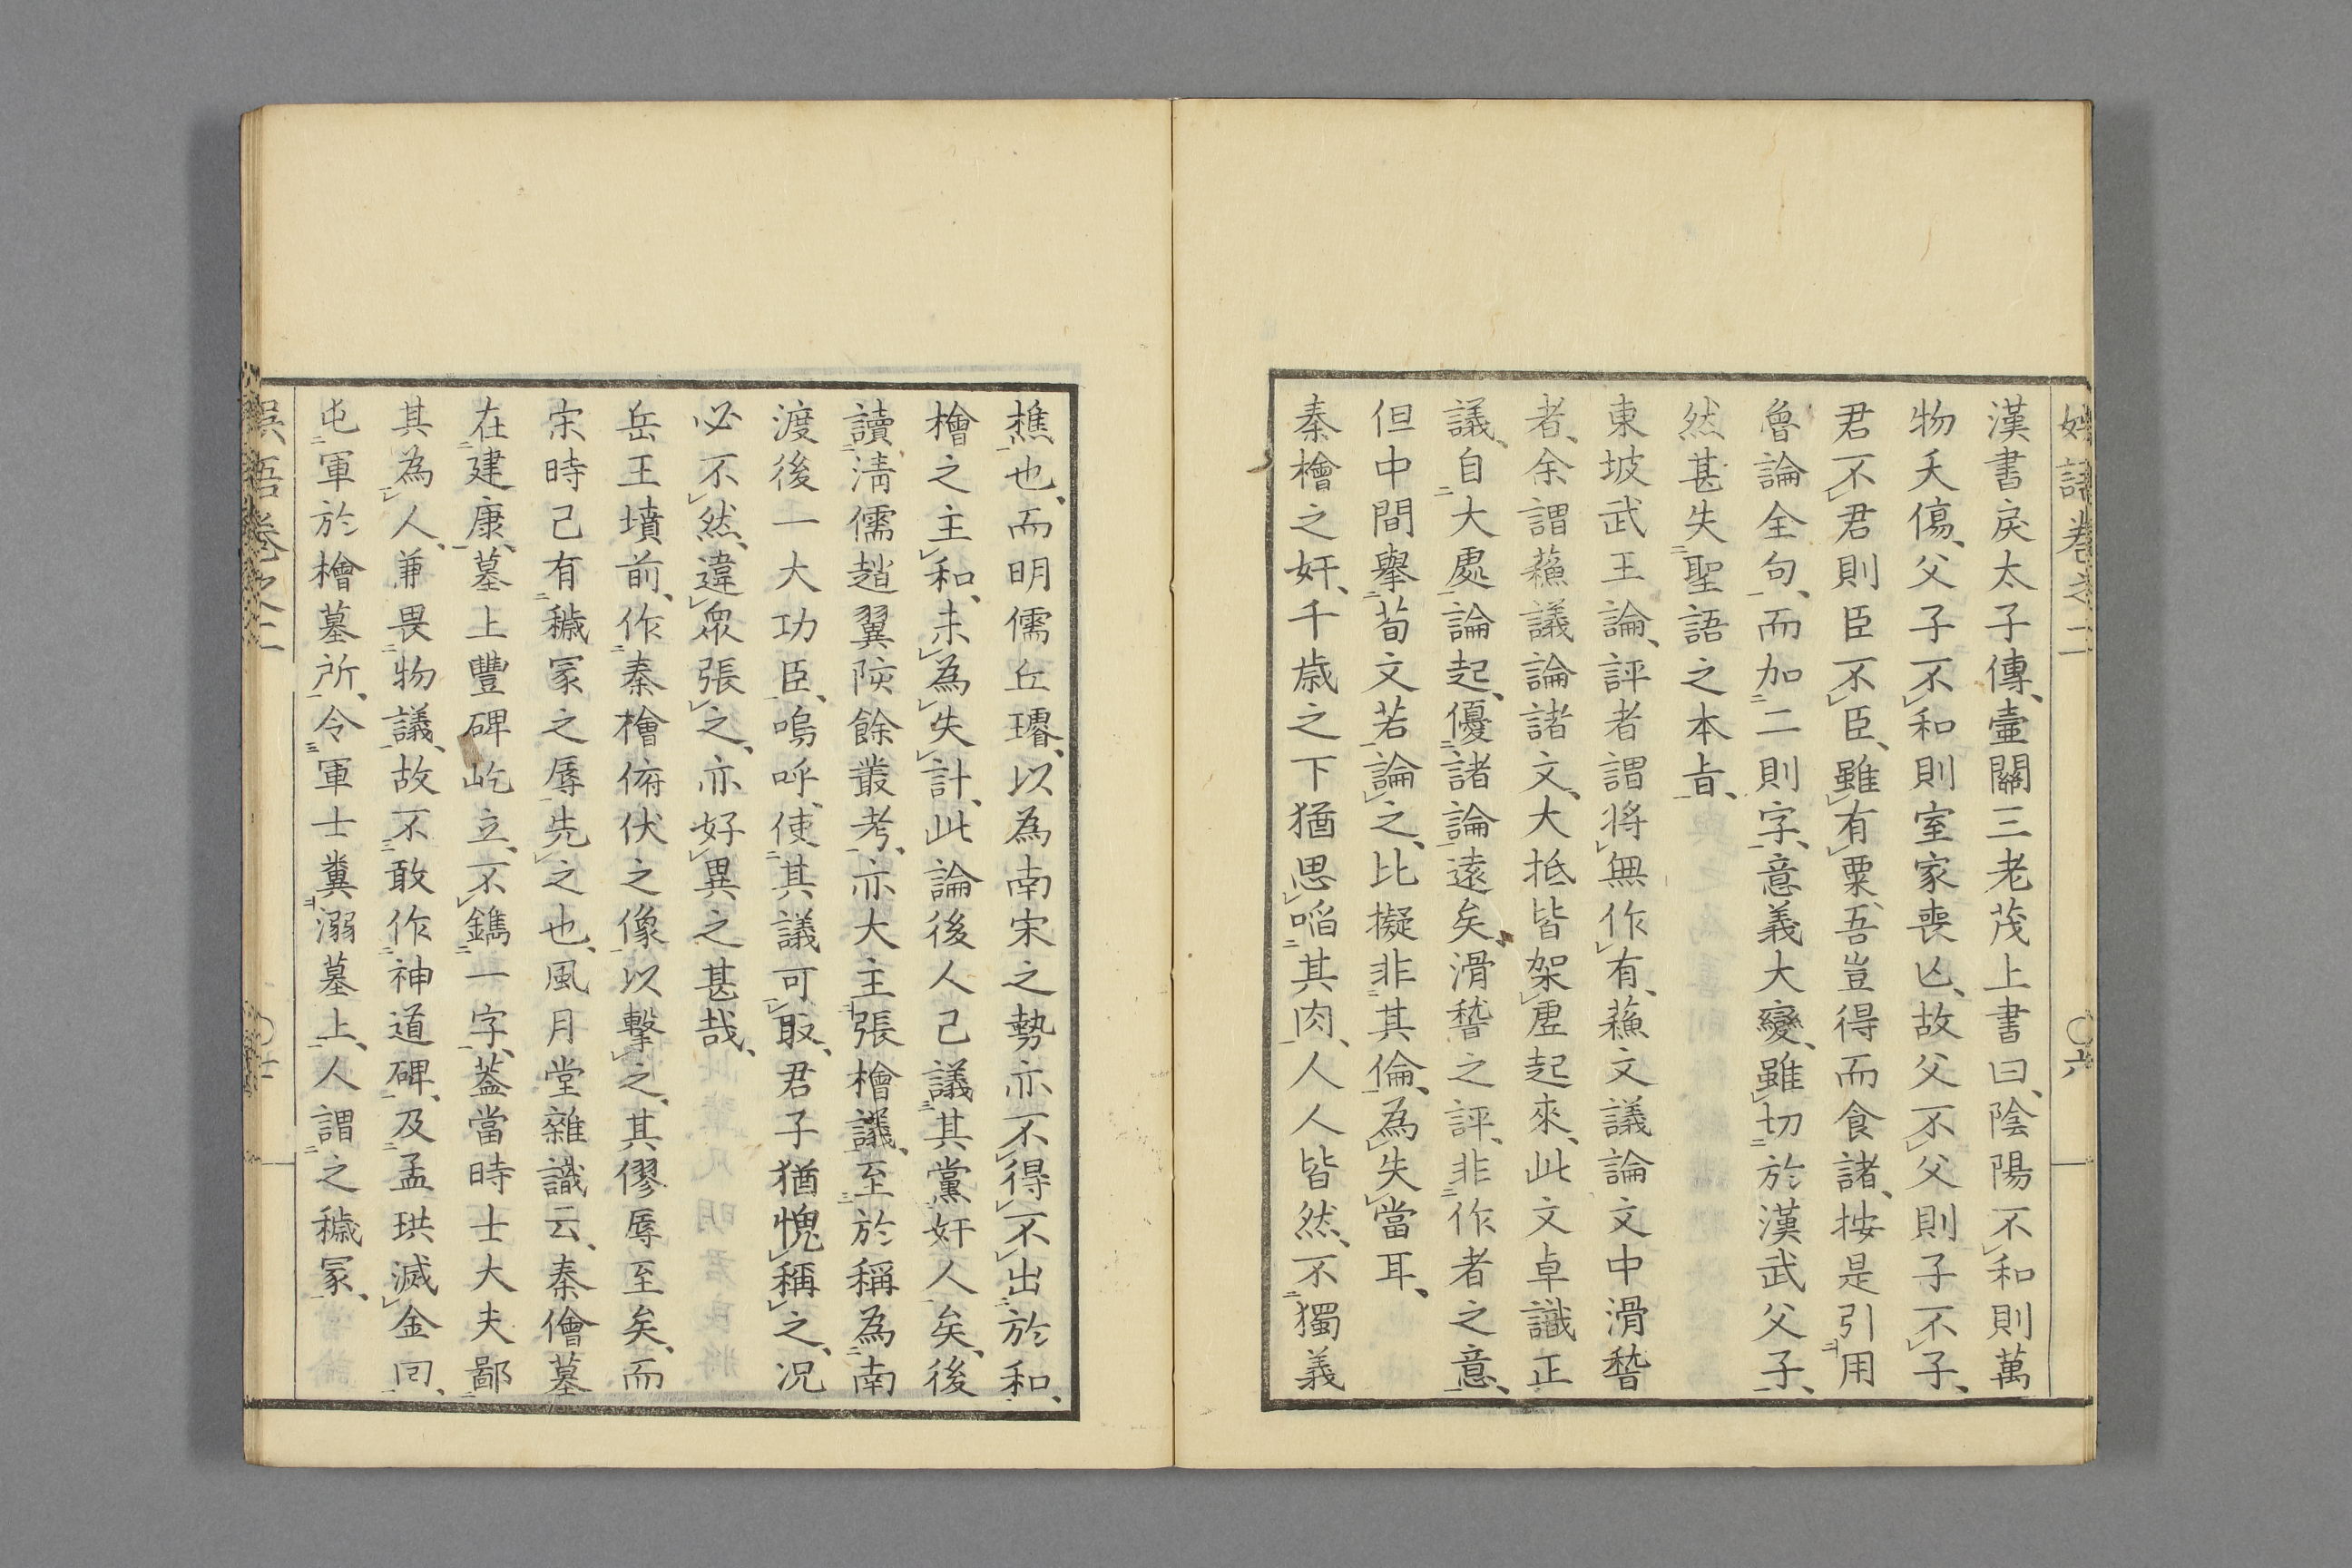 漢書戾太子傳、壷關三老茂上書曰、陰陽不和則萬
物夭傷、父子不和則室家喪亾、故父不父則子不子、
君不君則臣不臣、雖有粟、吾豈得而食諸、按是引用
魯論全句、而加二則字、意義大變、雖切於漢武父子、
然甚失聖語之本㫖、
東坡武王論、評者謂將無作有、蘓文議論文中滑稽
者、余謂蘓議論諸文、大抵皆架虛起來、此文卓識正
議、自大處論起、優諸論遠矣、滑稽之評、非作者之意、
但中間擧荀文若論之、比擬非其倫、為失當耳、
秦檜之奸、千歳之下猶思啗其肉、人人皆然、不獨義
樵也、而明儒丘璿、以為南宋之勢亦不得不出於和、
檜之主和、未為失計、此論後人己議其黨奸人矣、後
讀淸儒趙翼陔餘叢考、亦大主張檜議、至於稱為南
渡後一大功臣、嗚呼、使其議可取、君子猶愧稱之、况
必不然、違衆張之、亦好異之甚哉、
岳王墳前、作秦檜俯伏之像、以擊之、其僇辱至矣、而
宋時己有穢冡之辱先之也、風月堂雜識云、秦儈墓
在建康、墓上豐碑屹立、不鐫一字、葢當時士大夫鄙
其為人、兼畏物議、故不敢作神道碑、及孟珙滅金回、
屯軍於檜墓所、令軍士糞溺墓上、人謂之穢冡、